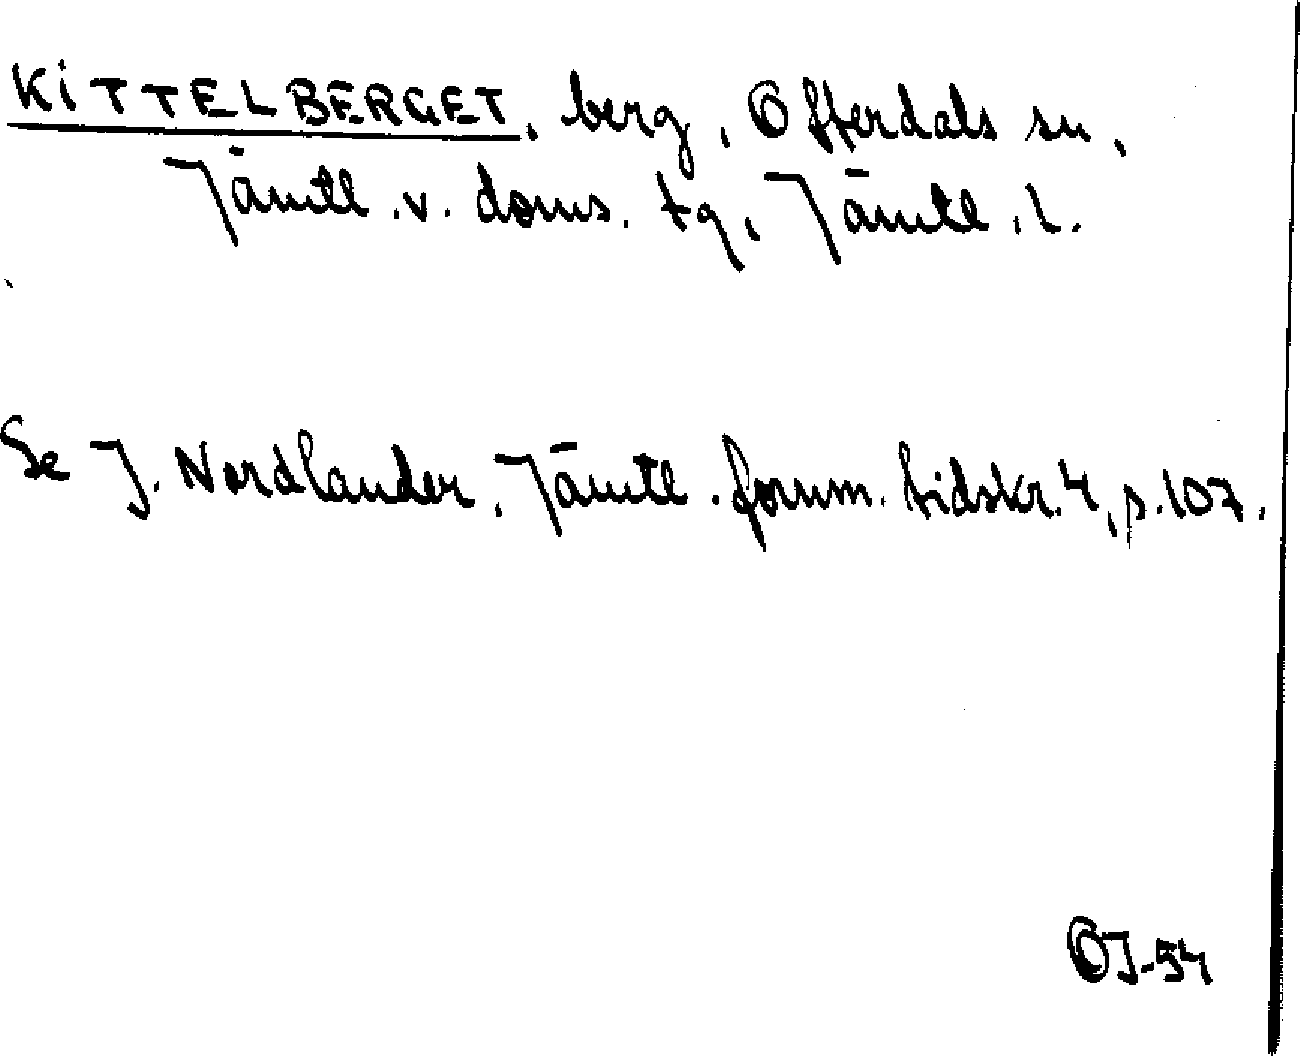 KITTELBERGET, berg, Offerdals sn,
Jämtl. v. doms. tg, Jämtl. l.
Se J. Nordlander, Jämtl. fornm. tidskr. 4, s. 107.
OJ-54